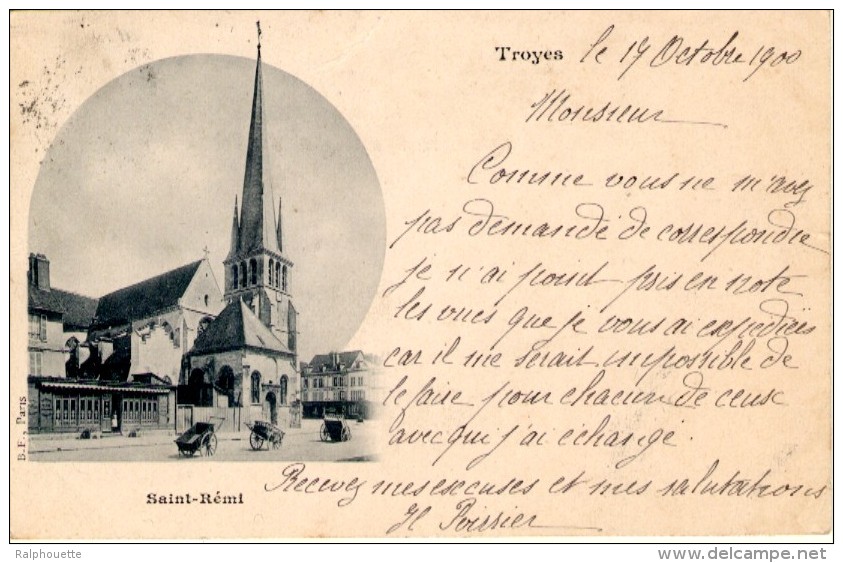 Troyes le 17 Octobre 1900
Monsieur
Comme vous ne m'avez
pas demandé de correspondre
je n'ai point pris en note
les vues que je vous ai expédiées
car il me serait impossible de
le faire pour chacun de ceux
avec qui j'ai échangé.
Recevez mes excuses et mes salutations
H Poirrier
Saint-Rémi
B.F., Paris
Ralphouette
http://www.delcampe.net